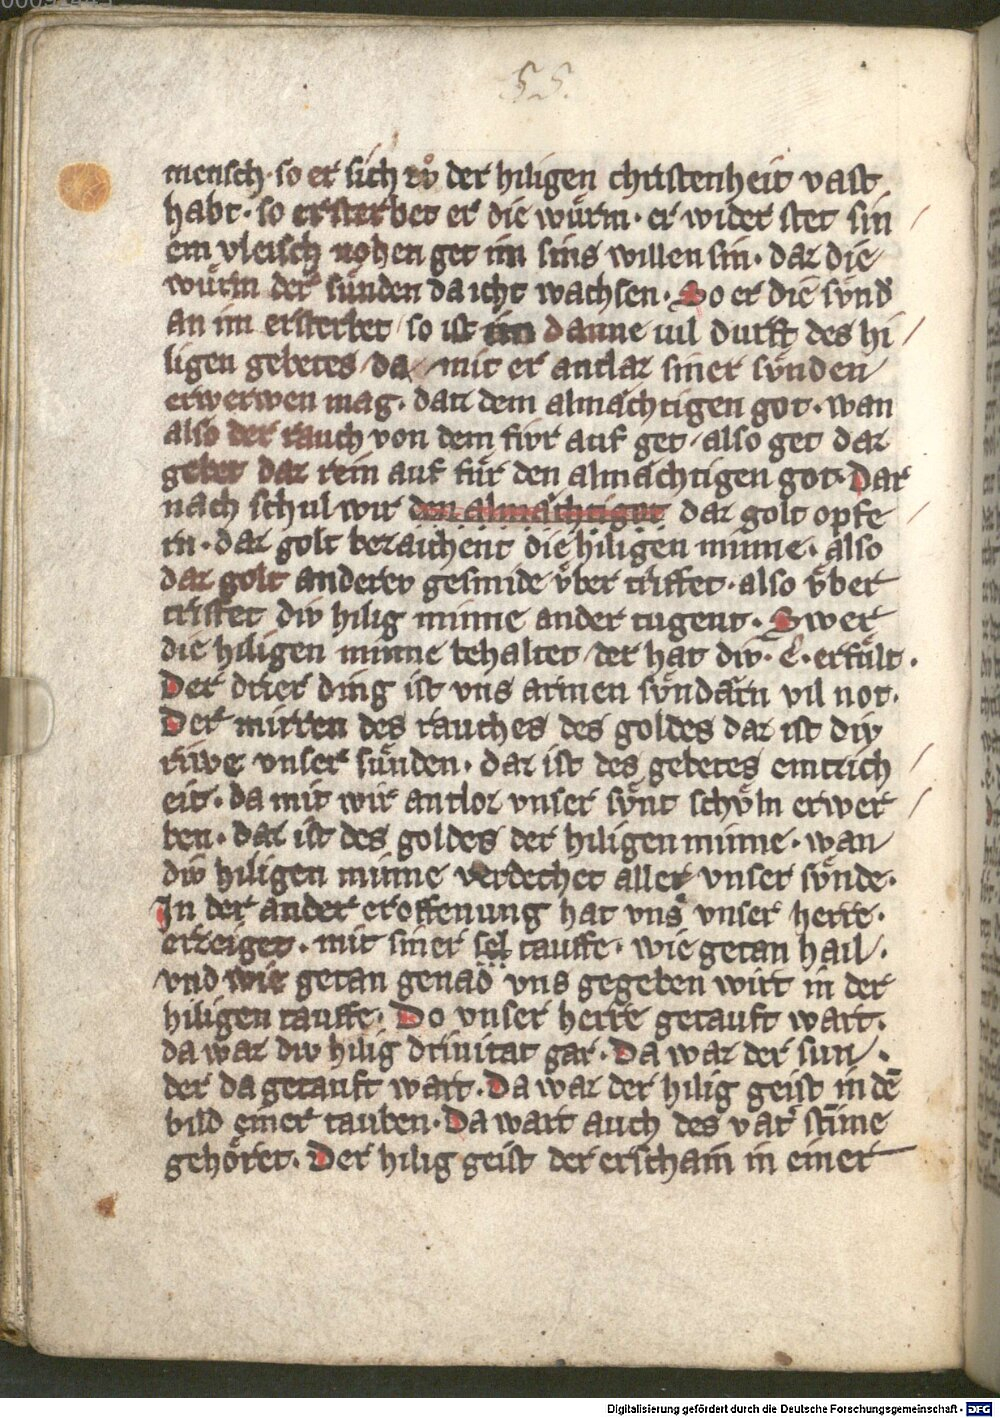 55.
mensch· so er sich zů der hiligen christenheit vast
habt· so ersterbet er die wuͤrm· er wider stet sin
em vleisch nohen get im sins willen sin· daz die
wuͤrm der suͤnden da icht wachsen· So er die svͤnd
an im ersterbet so ist im danne vil durft des hi
ligen gebetes da mit er antlaz siner svͤnden
erwerwen mag· datz dem almæchtigen got· wan
also der rauch von dem fivr auf get also get daz
gebet daz rein auf fuͤr den almæchtigen got· Dar
nach schul wir den almæchtigen daz golt opfe
rn· daz golt bezaichent die hiligen minne· also
daz golt anderev gesmide vͤber triffet· also vͤber
triffet div hilig minne ander tugent· Swer
die hiligen minne behaltet der hat div· é· erfuͤlt·
Der drier ding ist vns armen svͤndærn vil not·
Der mirren des rauches des goldes daz ist div
riwe vnser suͤnden· daz ist des gebetes emtzich
eit· da mit wir antloz vnser svͤnt schvͤln erwer
ben· daz ist des goldes der hiligen minne· wan
div hiligen minne verdechet aller vnser svͤnde·
In der ander eroffenung hat vns vnser herre·
erzeiget· mit siner sel tauffe· wie getan hail·
vnd wie getan genad vns gegeben wirt in der
hiligen tauffe· Do vnser herre getauft wart·
da waz div hilig drinitat gar· Da waz der sun·
der da getauft wart· Da waz der hilig geist in dē
bild einer tauben· Da wart auch des vat͛ stīme
gehoͤret· Der hilig geist der erschain in einer
Digitalisierung gefördert durch die Deutsche Forschungsgemeinschaft - DFG